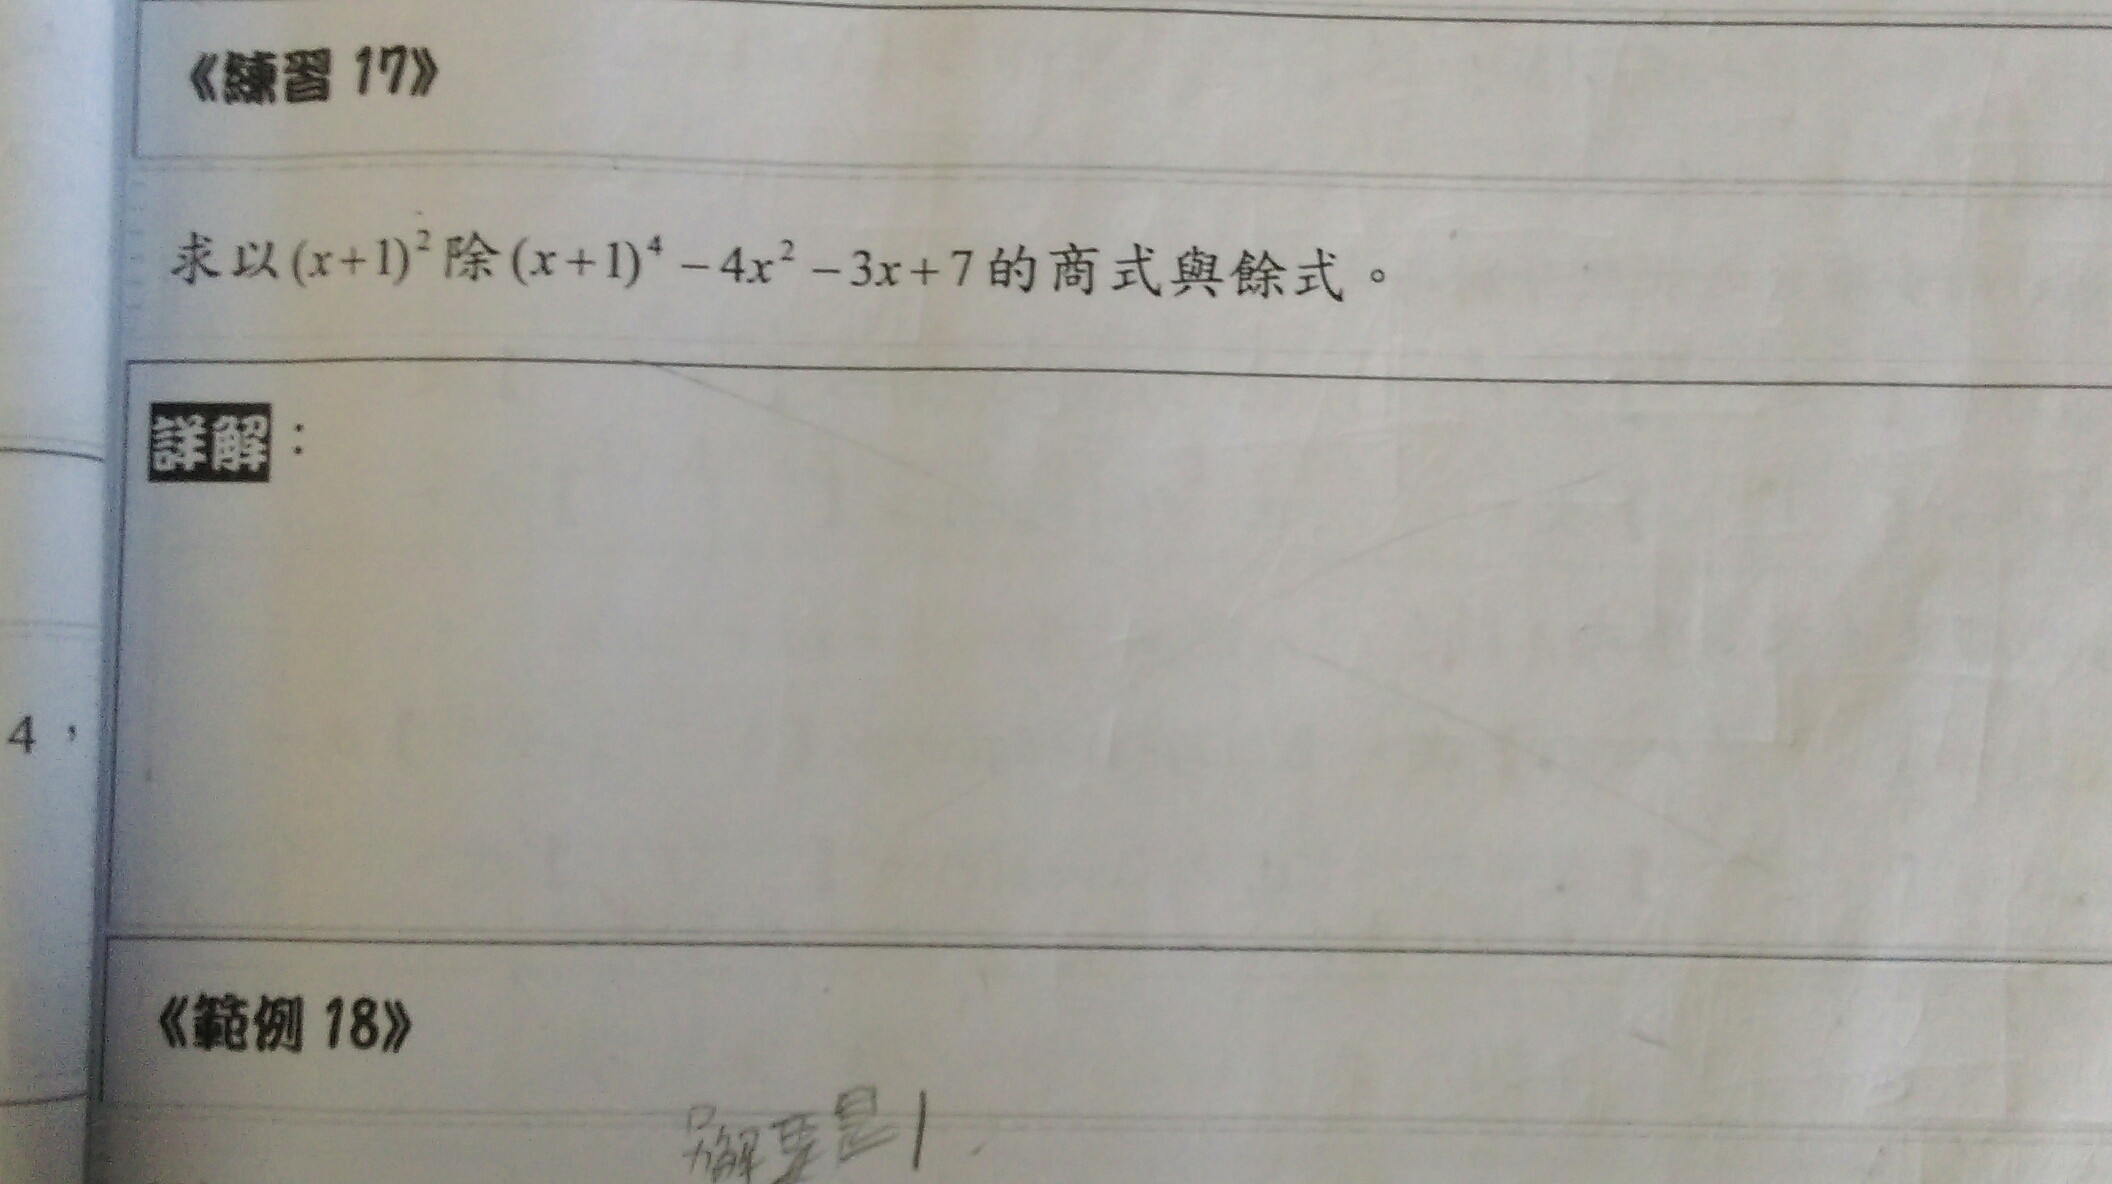 《練習 17》
求以(x+1)²除(x+1)⁴-4x²-3x+7的商式與餘式。
詳解：
4，
《範例 18》
解 是1